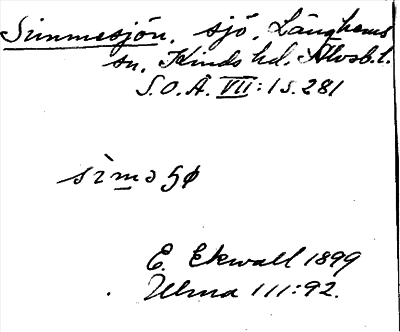 Simmesjön, sjö, Länghems
sn, Kinds hd, Älvsb. l.
S.O.Ä. VII:1 s. 281
E. Ekwall 1899
Ulma 111:92.